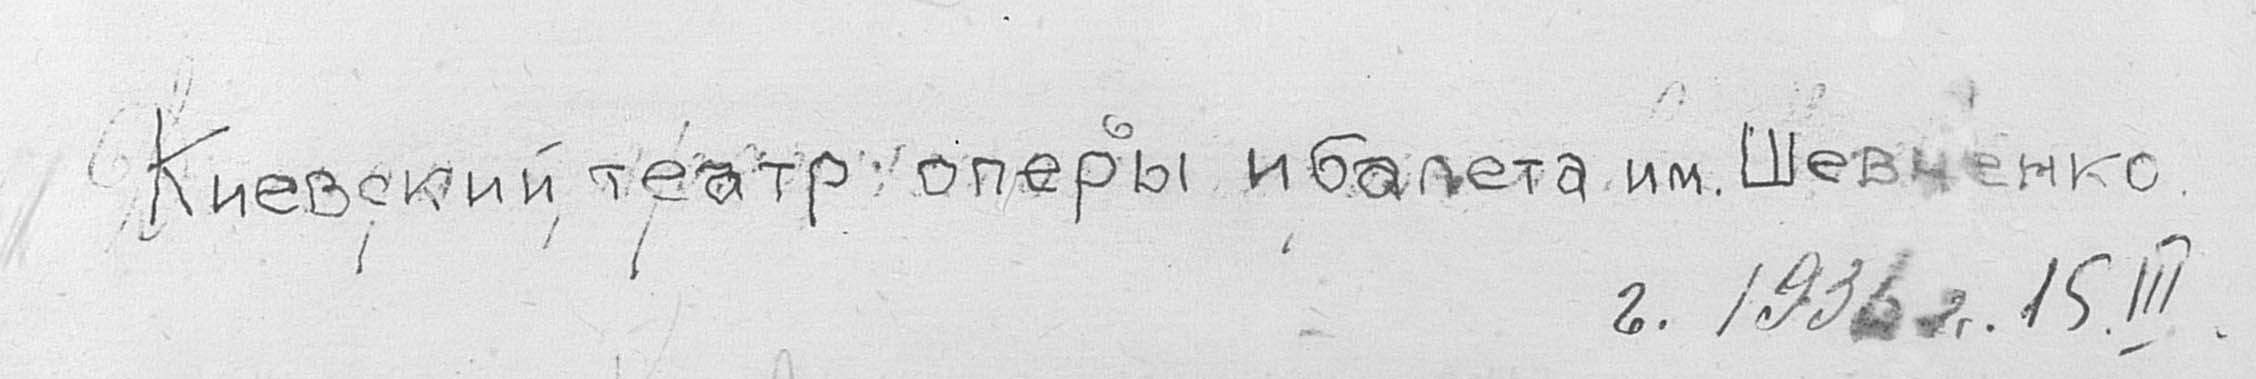 Киевский театр оперы и балета им. Шевченко.
г. 1936 г. 15.III.